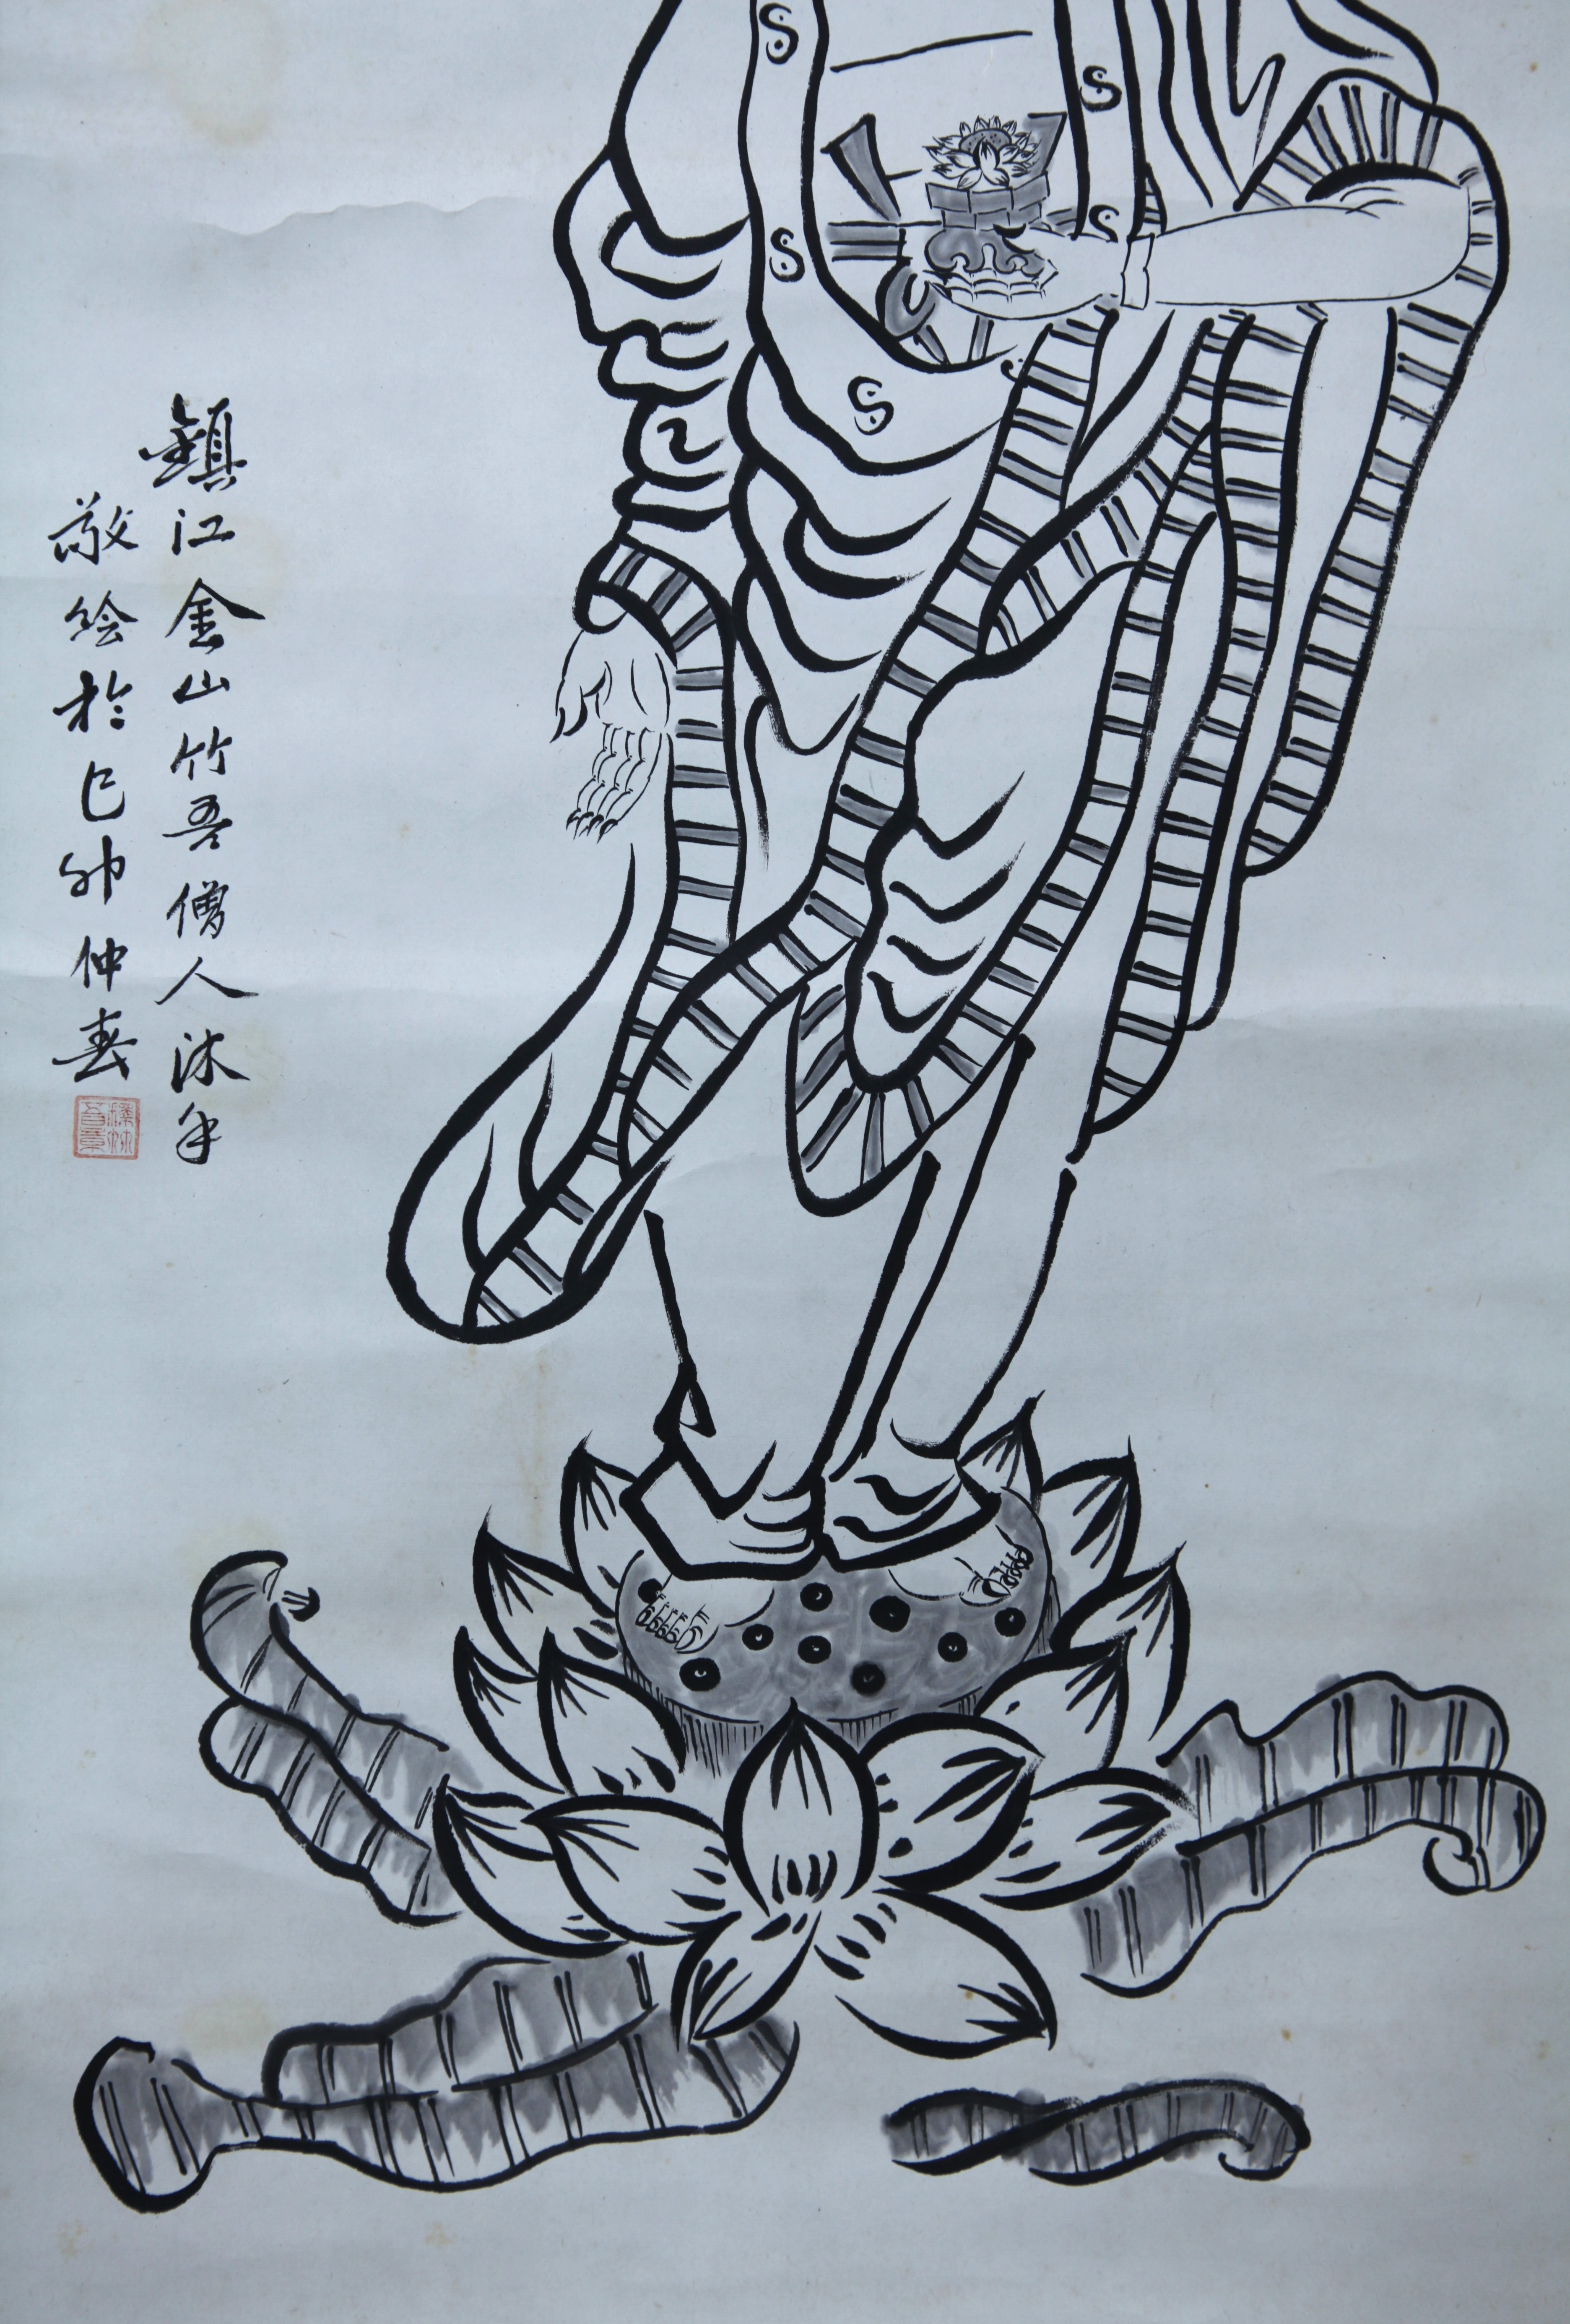 鎮江金山竹吾僧人沐手
敬绘於乙卯仲春